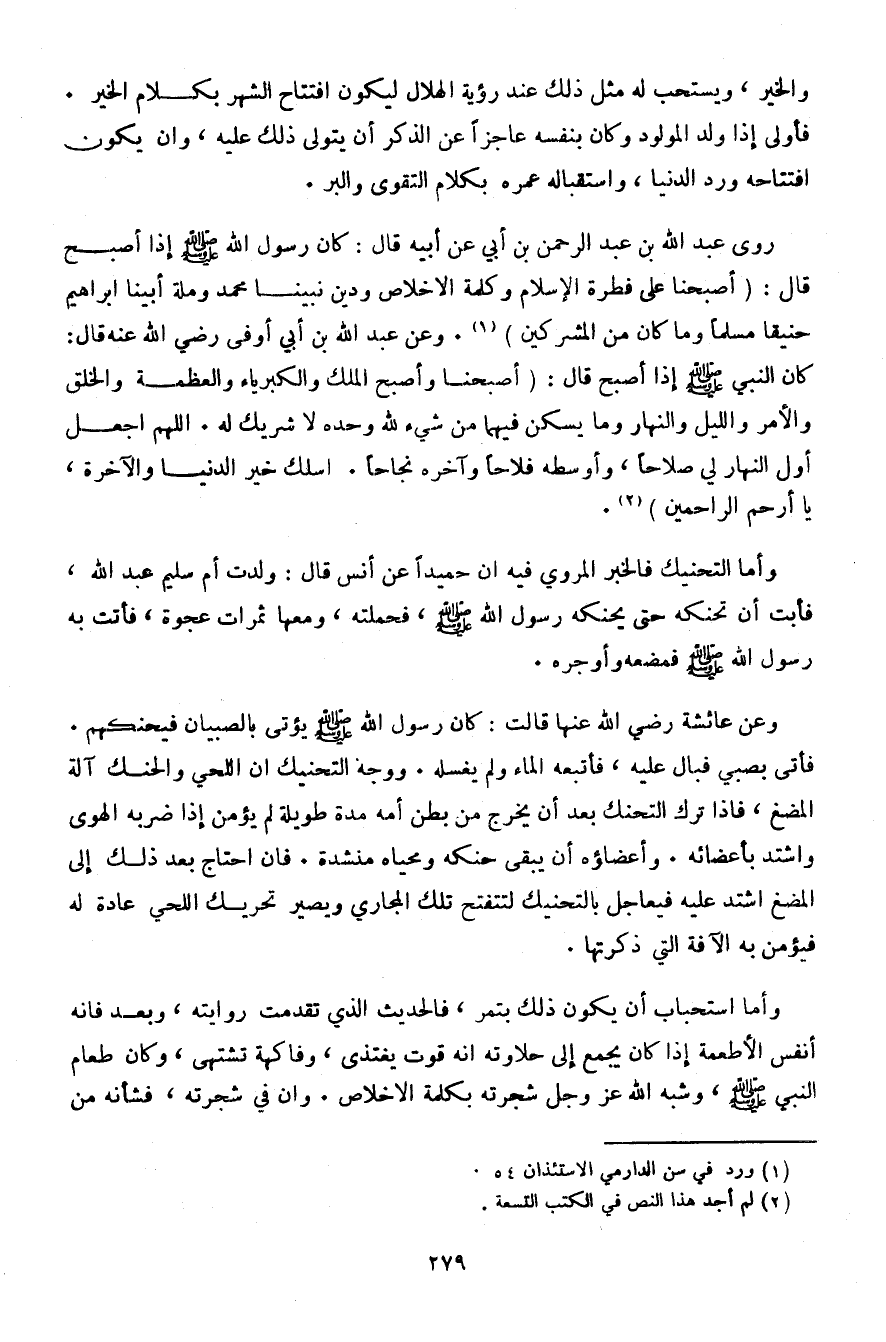 والخير ، ويستحب له مثل ذلك عند رؤية الهلال ليكون افتتاح الشهر بكلام الخير .
فأولى إذا ولد المولود وكان بنفسه عاجزاً عن الذكر أن يتولى ذلك عليه ، وان يكون
افتتاحه ورد الدنيا ، واستقباله عمره بكلام التقوى والبر .
روى عبد الله بن عبد الرحمن بن أبي عن أبيه قال : كان رسول الله ﷺ إذا أصبح
قال : ( أصبحنا على فطرة الإسلام وكلمة الاخلاص ودين نبينا محمد وملة أبينا ابراهيم
حنيقا مسلماً وما كان من المشركين ) (١) . وعن عبد الله بن أبي أوفى رضي الله عنه قال:
كان النبي ﷺ إذا أصبح قال : ( أصبحنا وأصبح الملك والكبرياء والعظمة والخلق
والأمر والليل والنهار وما يسكن فيهما من شيء لله وحده لا شريك له . اللهم اجعل
أول النهار لي صلاحاً ، وأوسطه فلاحاً وآخره نجاحاً . اسلك خير الدنيا والآخرة ،
يا أرحم الراحمين ) (٢) .
وأما التحنيك فالخبر المروي فيه ان حميداً عن أنس قال : ولدت أم سليم عبد الله ،
فأبت أن تحنكه حتى يحنكه رسول الله ﷺ ، فحملته ، ومعها ثمرات عجوة ، فأتت به
رسول الله ﷺ فمضعه وأوجره .
وعن عائشة رضي الله عنها قالت : كان رسول الله ﷺ يؤتى بالصبيان فيحنكهم .
فأتى بصبي فبال عليه ، فأتبعه الماء ولم يغسله . ووجه التحنيك ان اللحي والحنك آلة
المضغ ، فاذا ترك التحنك بعد أن يخرج من بطن أمه مدة طويلة لم يؤمن إذا ضربه الهوى
واشتد بأعضائه . وأعضاؤه أن يبقى حنكه ومحياه منشدة . فان احتاج بعد ذلك إلى
المضغ اشتد عليه فيعاجل بالتحنيك لتتفتح تلك المجاري ويصير تحريك اللحي عادة له
فيؤمن به الآفة التي ذكرتها .
وأما استحباب أن يكون ذلك بتمر ، فالحديث الذي تقدمت روايته ، وبعد فانه
أنفس الأطعمة إذا كان يجمع إلى حلاوته انه قوت يغتذى ، وفاكهة تشتهى ، وكان طعام
النبي ﷺ ، وشبه الله عز وجل شجرته بكلمة الاخلاص . وان في شجرته ، فشأنه من
(١) ورد في سن الدارمي الاستئذان ٥٤ .
(٢) لم أجد هذا النص في الكتب التسعة .
٢٧٩